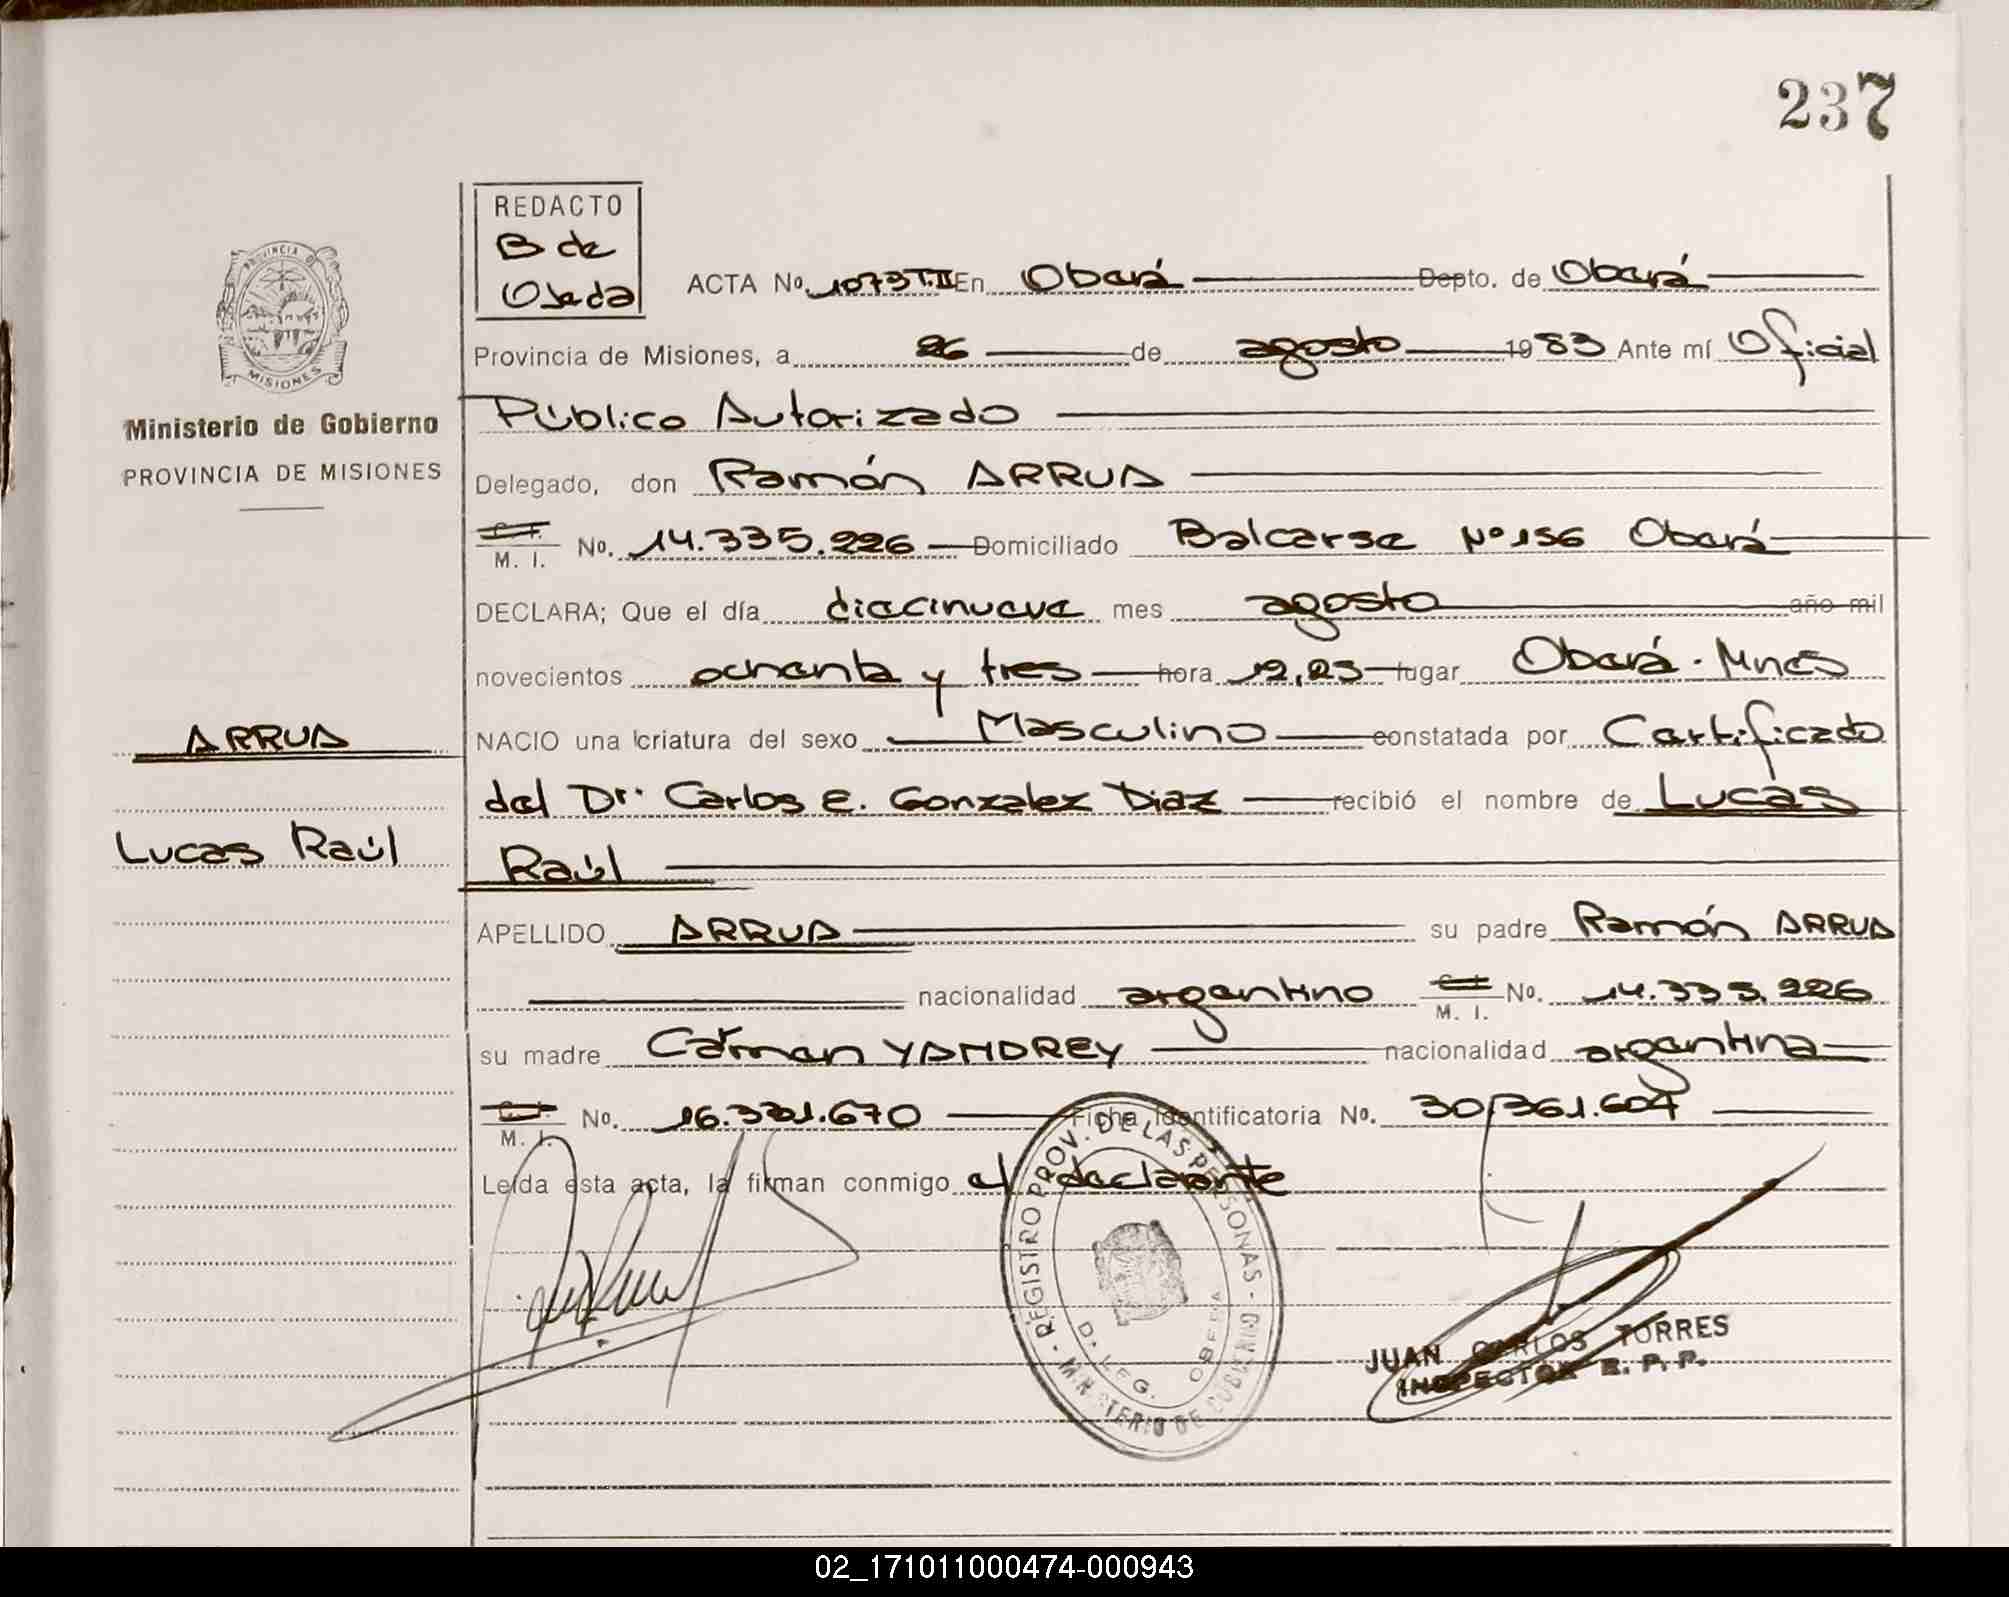 237
REDACTO
B de
Ojeda
ACTA No. 1073 T.II En Oberá Depto. de Oberá
PROVINCIA DE
MISIONES
Provincia de Misiones, a 26 de agosto 1983 Ante mí Oficial
Ministerio de Gobierno
Público Autorizado
PROVINCIA DE MISIONES
Delegado, don Ramón ARRUA
C. I.
M. I. No. 14.335.226 Domiciliado Balcarse Nº 156 Oberá
DECLARA; Que el día diecinueve mes agosto año mil
novecientos ochenta y tres hora 12,25 lugar Oberá - Mnes
ARRUA
NACIO una criatura del sexo Masculino constatada por Certificado
del Dr. Carlos E. Gonzalez Diaz recibió el nombre de Lucas
Lucas Raúl
Raúl
APELLIDO ARRUA su padre Ramón ARRUA
nacionalidad argentino C. I. M. I. No. 14.335.226
su madre Cármen YANDREY nacionalidad argentina
C. I.
M. I. No. 16.331.670 Ficha Identificatoria No. 30.361.604
Leída esta acta, la firman conmigo el declarante
REGISTRO PROV. DE LAS PERSONAS - MINISTERIO DE GOBIERNO
DELEG. OBERA
JUAN CARLOS TORRES
INSPECTOR R. P. P.
02_171011000474-000943